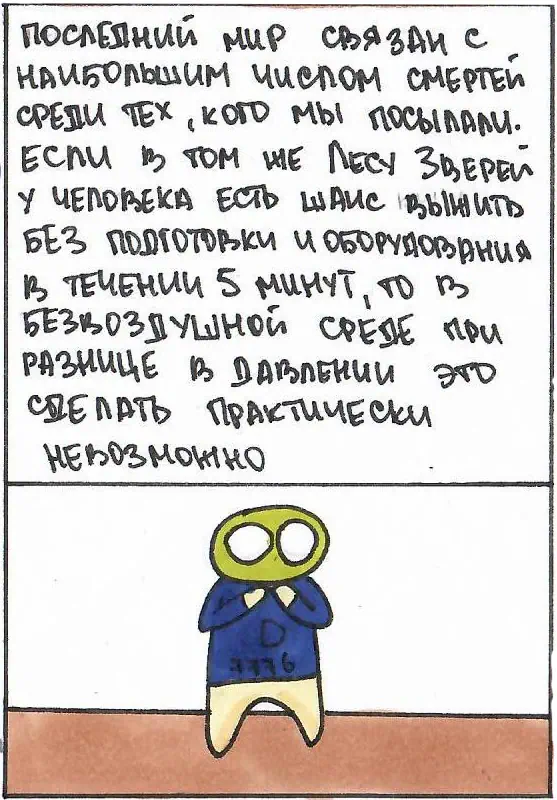 ПОСЛЕДНИЙ МИР СВЯЗАН С
НАИБОЛЬШИМ ЧИСЛОМ СМЕРТЕЙ
СРЕДИ ТЕХ, КОГО МЫ ПОСЫЛАЛИ.
ЕСЛИ В ТОМ ЖЕ ЛЕСУ ЗВЕРЕЙ
У ЧЕЛОВЕКА ЕСТЬ ШАНС ВЫЖИТЬ
БЕЗ ПОДГОТОВКИ И ОБОРУДОВАНИЯ
В ТЕЧЕНИИ 5 МИНУТ, ТО В
БЕЗВОЗДУШНОЙ СРЕДЕ ПРИ
РАЗНИЦЕ В ДАВЛЕНИИ ЭТО
СДЕЛАТЬ ПРАКТИЧЕСКИ
НЕВОЗМОЖНО
D
7776